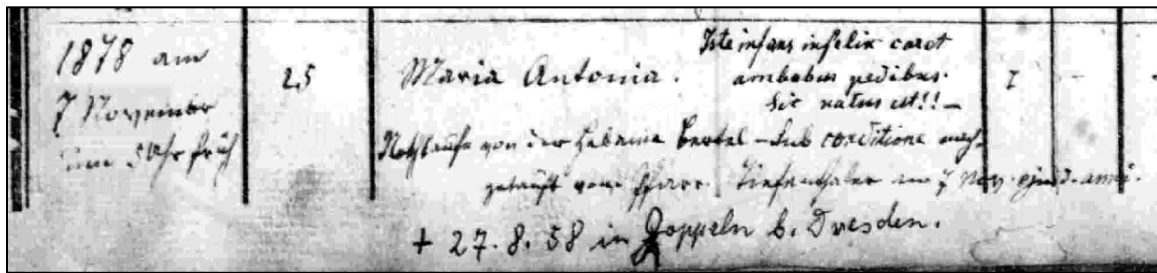 1878 am
7 November
um 5 Uhr früh
25
Maria Antonia.
Iste infans infelix caret
ambobus pedibus.
Sic natus est!! —
I
Nothtaufe von der Hebamme Bertel — sub conditione nach-
getauft vom Pfarr. Tiefenthaler am 7 Nov. ejusd. anni.
+ 27.8.58 in Goppeln b. Dresden.